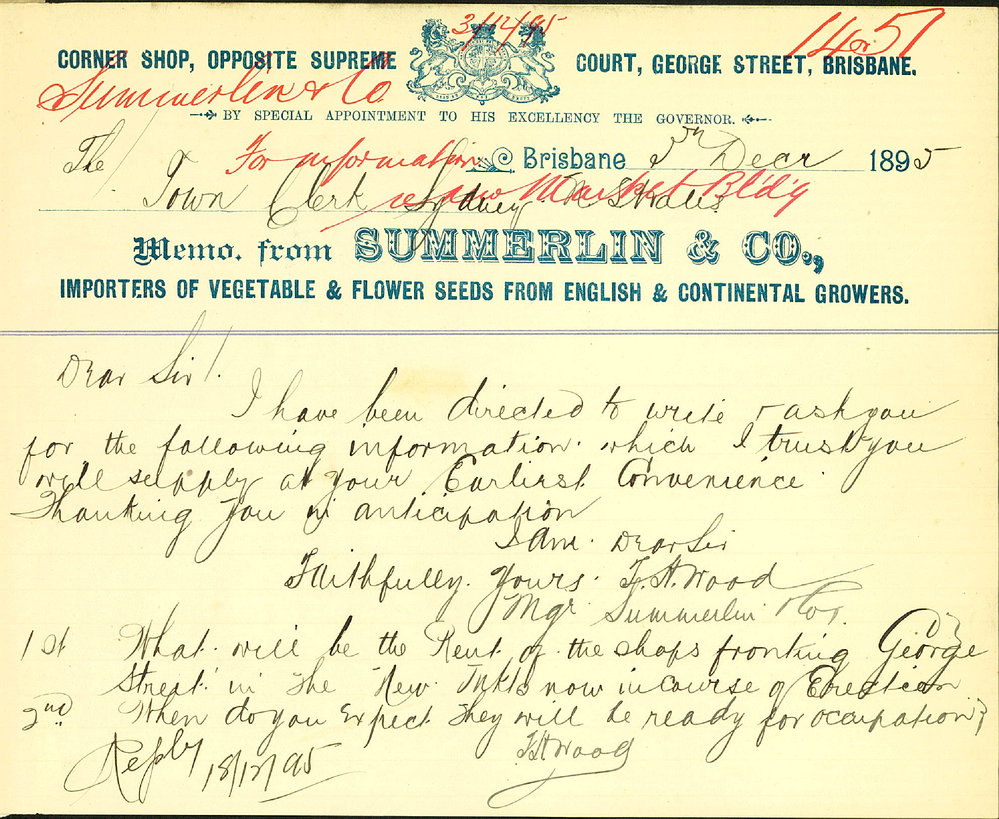 3/12/95
1451
CORNER SHOP, OPPOSITE SUPREME COURT, GEORGE STREET, BRISBANE.
Summerlin & Co
BY SPECIAL APPOINTMENT TO HIS EXCELLENCY THE GOVERNOR.
The For information Brisbane 5th Decr 1895
re new Market Bldg
Town Clerk Sydney N S Wales
Memo. from SUMMERLIN & CO.,
IMPORTERS OF VEGETABLE & FLOWER SEEDS FROM ENGLISH & CONTINENTAL GROWERS.
Dear Sir/.
I have been directed to write & ask you
for the following information. which I trust you
will supply at your Earliest Convenience
Thanking you in anticipation
I am. Dear Sir
Faithfully. yours. F. H. Wood
Mgr Summerlin & Co.
1st What will be the Rent of the shops fronting George
Street in The New Mkts now in course of Erection
2nd When do you Expect They will be ready for occupation?
Reply 18/12/95
F H Wood